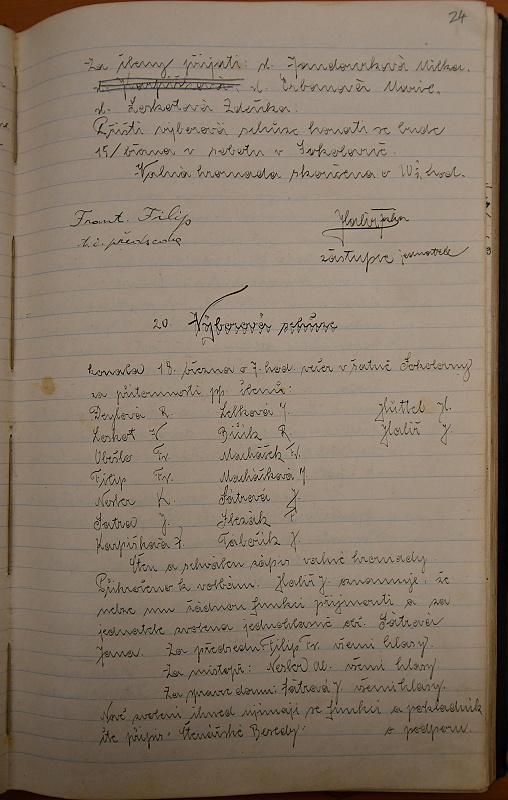 24
Za členy přijati: s. Jandourková Milka.
s. Urbanová Marie.
s. Leskotová Zdeňka.
Příští výborová schůze konati se bude
15/března v sobotu v Sokolovně.
Valná hromada skončena o 10½ hod.
Frant. Filip
t.č. předseda
Halíř
zástupce jednatele
20. Výborová schůze
konala 18. března o 7. hod. večer v šatně Sokolovny
za přítomnosti pp. členů:
R. Lelková J. Hüttel H.
Leskot Bičík R. Halíř J.
Fr. Macháček Fr.
Filip Fr. Macháčková J.
Nesler K. Šátrová J.
Šátra J. Slezák F.
Karpíšková Tabořík J.
Čten a schválen zápis valné hromady.
Přikročeno k volbám. Halíř J. oznamuje, že
nebe mu žádnou funkci přijmouti a za
jednatele zvolena jednohlasně sest. Šátrová
Jana. Za předsedu: Filip Fr. všemi hlasy.
Za místopř: Nesler všemi hlasy.
Za správce domu: Šátrová J. všemi hlasy.
Nově zvolení ihned ujímají se funkcí a pokladník
čte přípis Čtenářské Besedy o podporu.